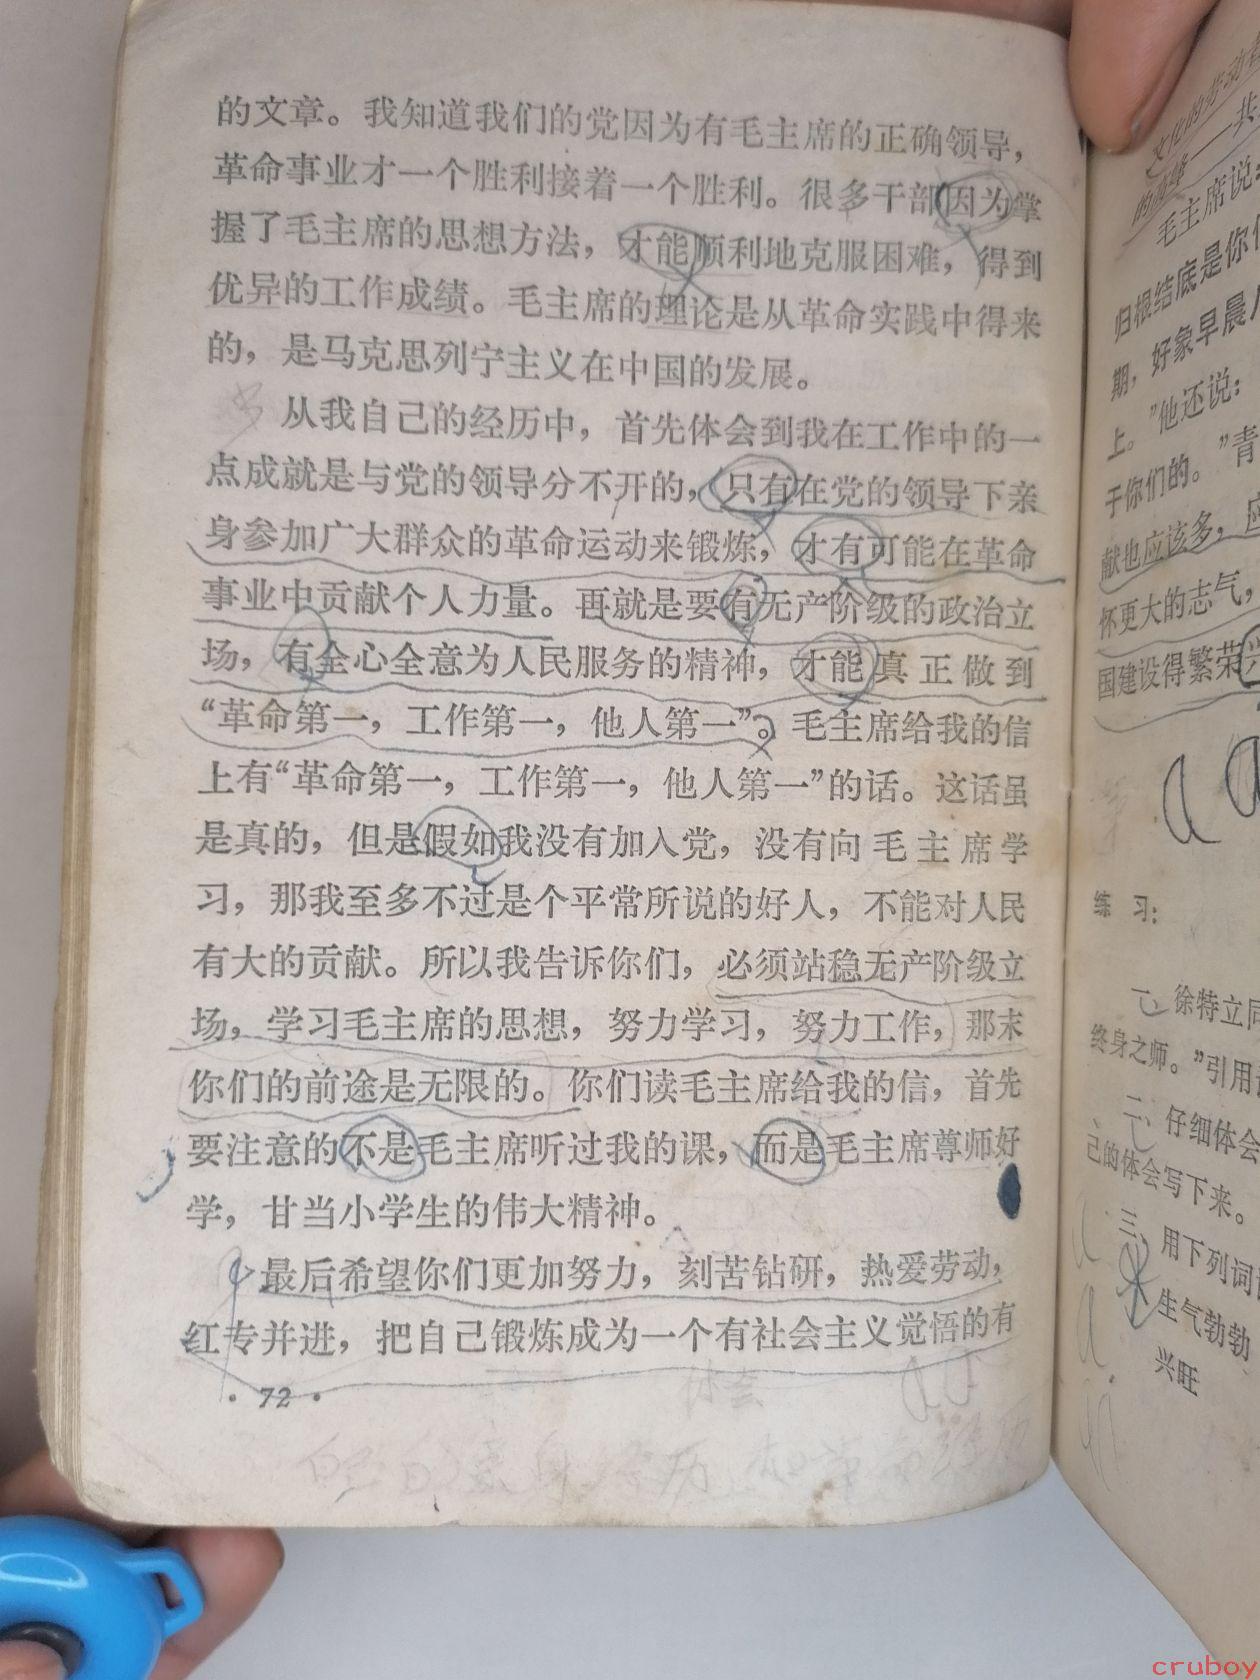 的文章。我知道我们的党因为有毛主席的正确领导，
革命事业才一个胜利接着一个胜利。很多干部因为掌
握了毛主席的思想方法，才能顺利地克服困难，得到
优异的工作成绩。毛主席的理论是从革命实践中得来
的，是马克思列宁主义在中国的发展。
从我自己的经历中，首先体会到我在工作中的一
点成就是与党的领导分不开的，只有在党的领导下亲
身参加广大群众的革命运动来锻炼，才有可能在革命
事业中贡献个人力量。再就是要有无产阶级的政治立
场，有全心全意为人民服务的精神，才能真正做到
“革命第一，工作第一，他人第一”。毛主席给我的信
上有“革命第一，工作第一，他人第一”的话。这话虽
是真的，但是假如我没有加入党，没有向毛主席学
习，那我至多不过是个平常所说的好人，不能对人民
有大的贡献。所以我告诉你们，必须站稳无产阶级立
场，学习毛主席的思想，努力学习，努力工作，那末
你们的前途是无限的。你们读毛主席给我的信，首先
要注意的不是毛主席听过我的课，而是毛主席尊师好
学，甘当小学生的伟大精神。
最后希望你们更加努力，刻苦钻研，热爱劳动，
红专并进，把自己锻炼成为一个有社会主义觉悟的有
·72·
体会
文化的劳动者
的高峰——共
毛主席说：
归根结底是你们
期，好象早晨八
上。”他还说：
于你们的。”青
献也应该多，应
怀更大的志气，
国建设得繁荣
练 习：
一、徐特立同
终身之师。”引用
二、仔细体会
己的体会写下来。
三、用下列词
生气勃勃
兴旺
cruboy